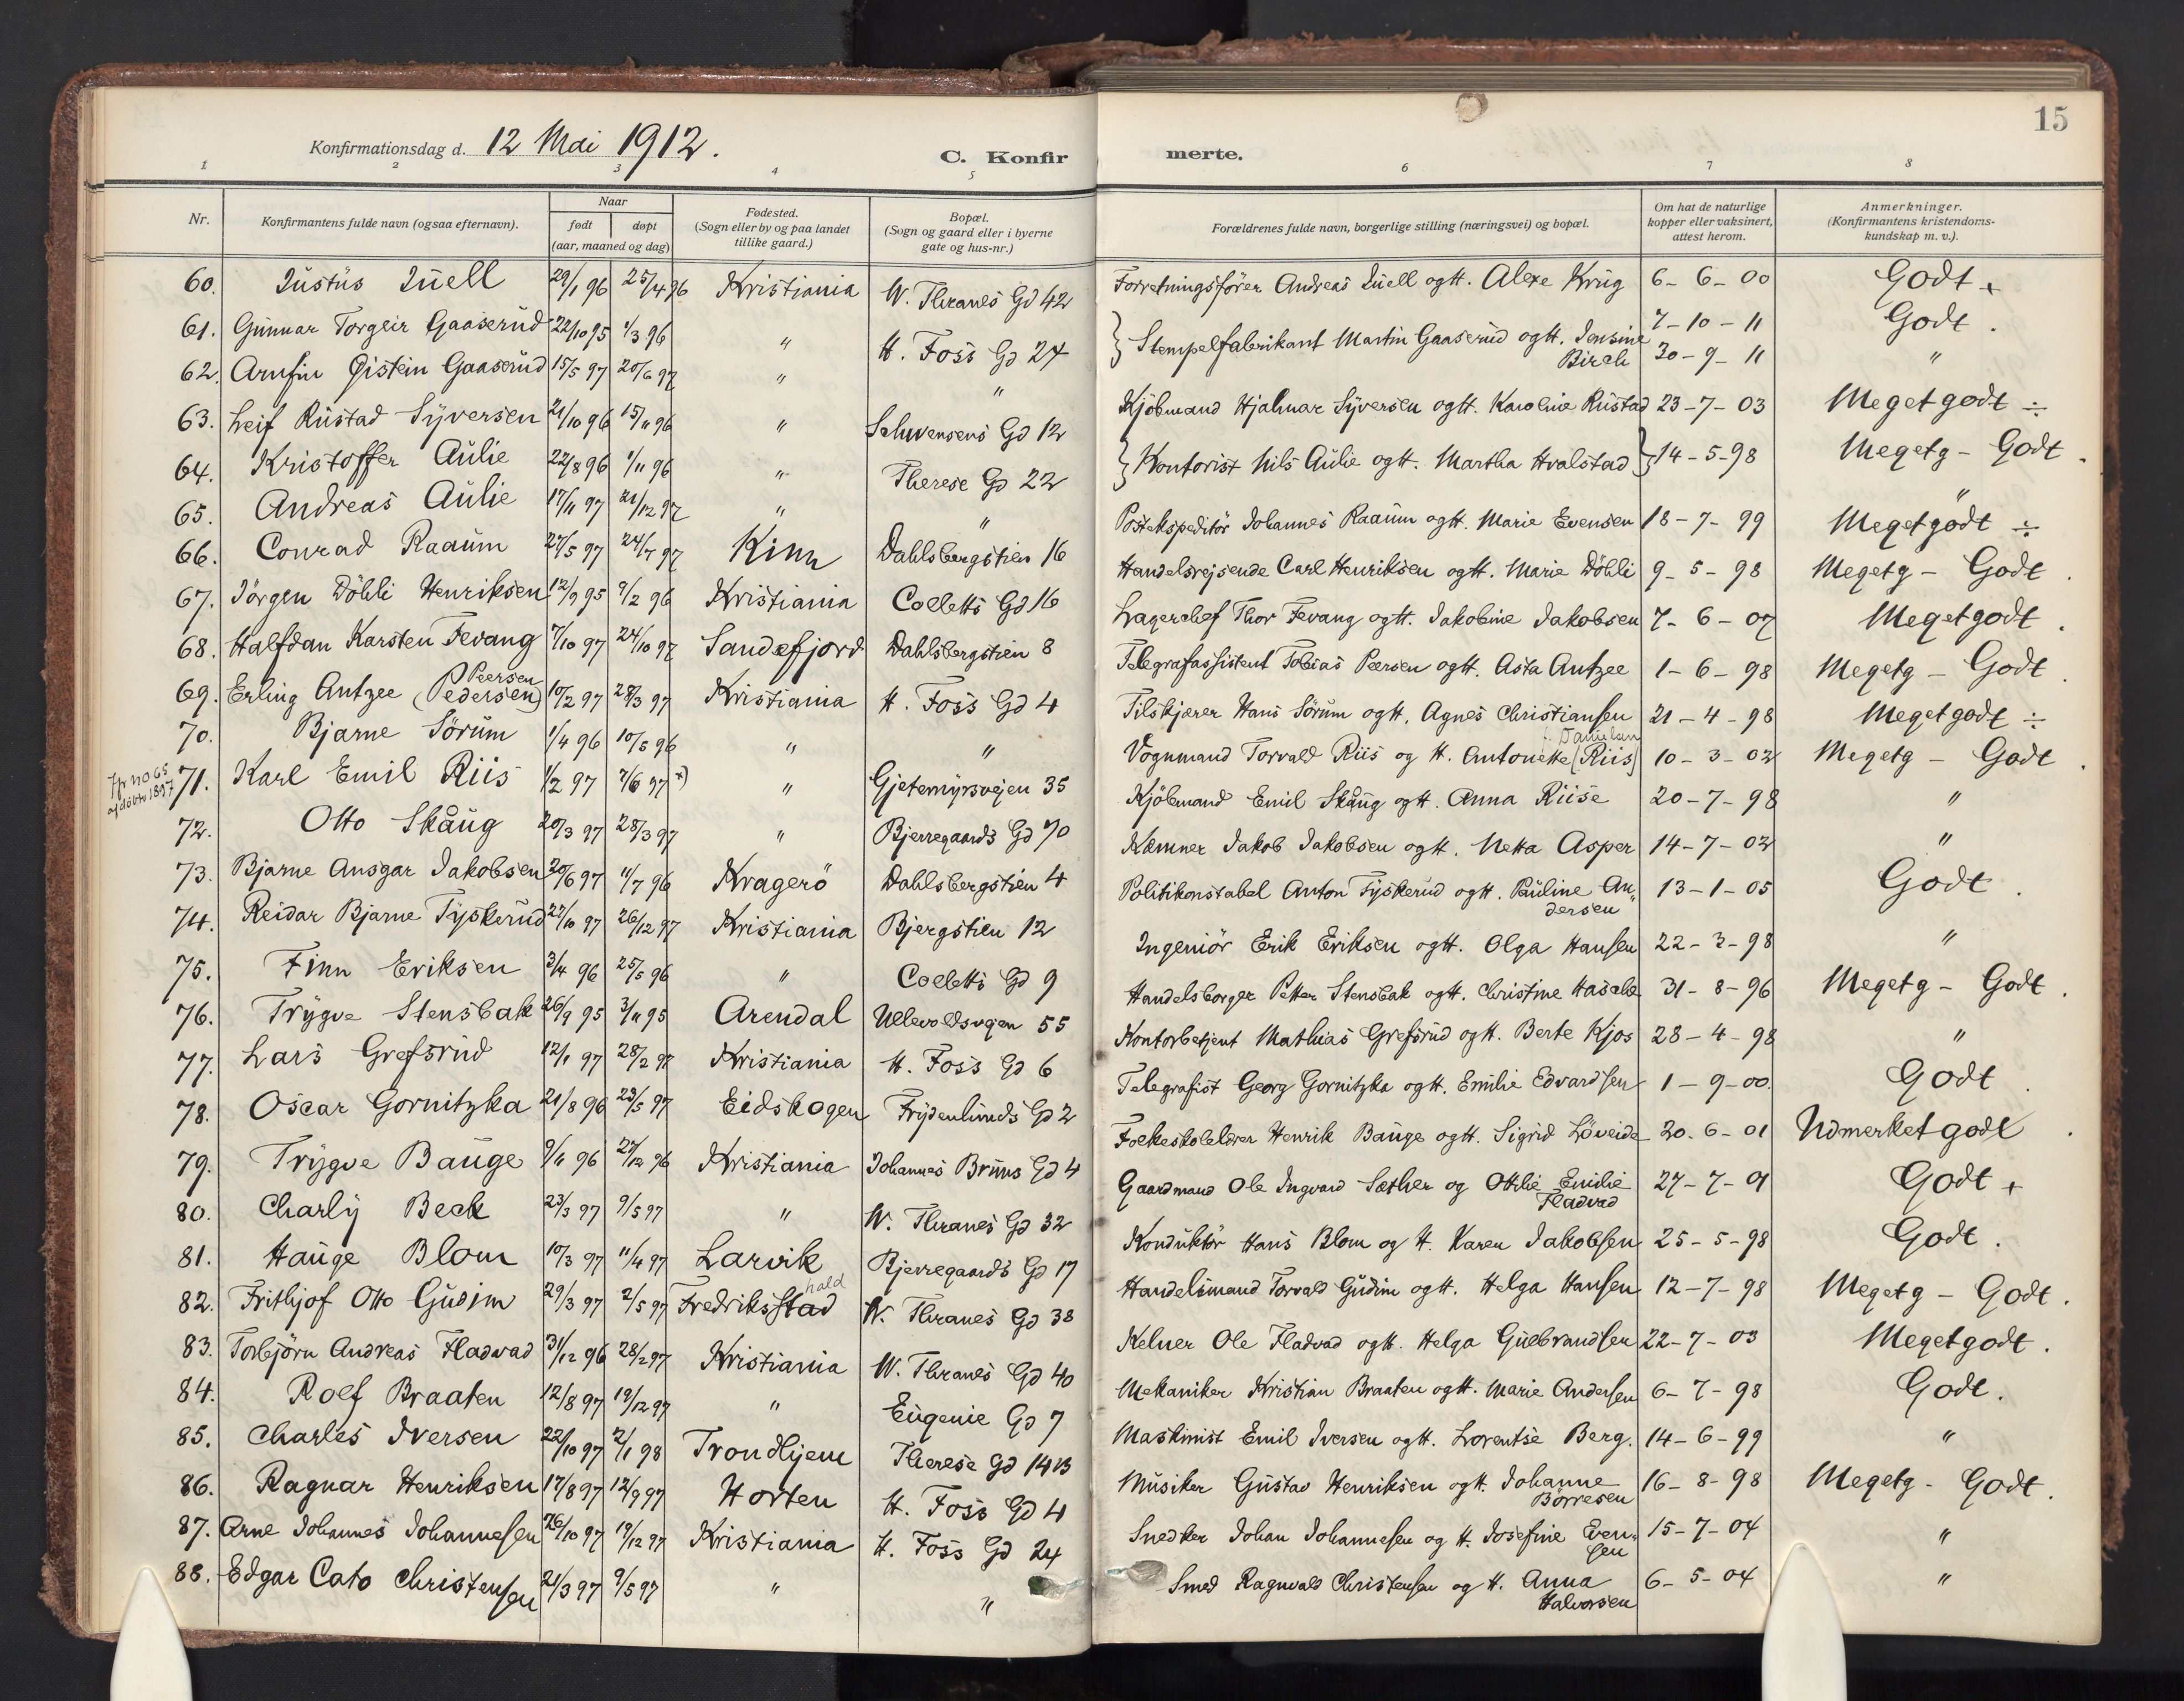 15
Konfirmationsdag d. 12 Mai 1912.
C. Konfirmerte.
1 2 3 4 5 6 7 8
Nr. | Konfirmantens fulde navn (ogsaa efternavn). | Naar født døpt (aar, maaned og dag) | Fødested. (Sogn eller by og paa landet tillike gaard.) | Bopæl. (Sogn og gaard eller i byerne gate og hus-nr.) | Forældrenes fulde navn, borgerlige stilling (næringsvei) og bopæl. | Om hat de naturlige kopper eller vaksinert, attest herom. | Anmerkninger. (Konfirmantens kristendomskundskap m. v.).
60. Justus Juell 29/1 96 25/4 96 Kristiania W. Thranes Gd 42 Forretningsfører Andreas Juell og H. Alexe Krug 6-6-00 Godt +
61. Gunnar Torgeir Gaaserud 22/10 95 1/3 96 " H. Foss Gd 24 } Stempelfabrikant Martin Gaaserud og H. Jensine Birch 7-10-11 Godt.
62. Arnfin Øistein Gaaserud 15/5 97 20/6 97 " " 30-9-11 "
63. Leif Rustad Syversen 21/10 96 15/11 96 " Schwensens Gd 12 Kjøbmand Hjalmar Syversen og H. Karoline Rustad 23-7-03 Meget godt ÷
64. Kristoffer Aulie 22/8 96 1/11 96 " Therese Gd 22 } Kontorist Nils Aulie og H. Martha Hvalstad } 14-5-98 Megetg - Godt.
65. Andreas Aulie 17/11 97 21/12 97 " " "
66. Conrad Raaum 27/5 97 24/7 97 Kinn Dahlsbergstien 16 Postekspeditör Johannes Raaum og H. Marie Evensen 18-7-99 Meget godt ÷
67. Jörgen Döhli Henriksen 12/9 95 9/2 96 Kristiania Colletts Gd 16 Handelsrejsende Carl Henriksen og H. Marie Döhli 9-5-98 Megetg - Godt.
68. Halfdan Karsten Fevang 7/10 97 24/10 97 Sandefjord Dahlsbergstien 8 Lagerchef Thor Fevang og H. Jakobine Jakobsen 7-6-07 Meget godt.
69. Erling Antzee (Pedersen) Peersen 10/2 97 28/3 97 Kristiania H. Foss Gd 4 Telegrafassistent Tobias Peersen og H. Asta Antzee 1-6-98 Megetg - Godt.
70. Bjarne Sörum 1/4 96 10/5 96 " " Tilskjærer Hans Sörum og H. Agnes Christiansen 21-4-98 Meget godt ÷
71. Karl Emil Riis 1/2 97 7/6 97 *) " Gjetemyrsvejen 35 Vognmand Torvald Riis og H. Antonette (Riis) 10-3-02 Megetg - Godt.
72. Otto Skaug 20/3 97 28/3 97 " Bjerregaards Gd 70 Kjöbmand Emil Skaug og H. Anna Riise 20-7-98 "
73. Bjarne Ansgar Jakobsen 20/6 97 11/7 96 Kragerö Dahlsbergstien 4 Kæmner Jakob Jakobsen og H. Netta Asper 14-7-02 "
74. Reidar Bjarne Tyskerud 22/10 97 26/12 97 Kristiania Bjergstien 12 Politikonstabel Anton Tyskerud og H. Pauline Andersen 13-1-05 Godt.
75. Finn Eriksen 3/4 96 25/5 96 " Colletts Gd 9 Ingeniör Erik Eriksen og H. Olga Hansen 22-3-98 "
76. Trygve Stensbak 26/9 95 3/11 95 Arendal Ullevoldsvejen 55 Handelsborger Petter Stensbak og H. Christine 31-8-96 Megetg - Godt.
77. Lars Grefsrud 12/1 97 28/2 97 Kristiania H. Foss Gd 6 Kontorbetjent Mathias Grefsrud og H. Berte Kjos 28-4-98 "
78. Oscar Gornitzka 21/8 96 23/5 97 Eidskogen Frydenlunds Gd 2 Telegrafist Georg Gornitzka og H. Emilie Edvardsen 1-9-00. Godt.
79. Trygve Bauge 9/11 96 27/12 96 Kristiania Johannes Bruns Gd 4 Folkeskolelærer Henrik Bauge og H. Sigrid Löveide 20-6-01 Udmerket godt.
80. Charly Beck 23/3 97 9/5 97 " W. Thranes Gd 32 Gaardmand Ole Ingvard Sæther og Ottilie Emilie Fladvad 27-7-01 Godt +
81. Hauge Blom 10/3 97 11/4 97 Larvik Bjerregaards Gd 17 Konduktör Hans Blom og H. Karen Jakobsen 25-5-98 Godt.
82. Frithjof Otto Gudim 29/3 97 2/5 97 Fredriksstad hald W. Thranes Gd 38 Handelsmand Torvald Gudim og H. Helga Hansen 12-7-98 Megetg - Godt.
83. Torbjörn Andreas Fladvad 31/12 96 28/2 97 Kristiania W. Thranes Gd 40 Kelner Ole Fladvad og H. Helga Gulbrandsen 22-7-03 Meget godt.
84. Rolf Braaten 12/8 97 19/12 97 " Eugenie Gd 7 Mekaniker Kristian Braaten og H. Marie Andersen 6-7-98 Godt.
85. Charles Iversen 22/10 97 2/1 98 Trondhjem Therese Gd 14B Maskinist Emil Iversen og H. Lorentse Berg. 14-6-99 "
86. Ragnar Henriksen 17/8 97 12/9 97 Horten H. Foss Gd 4 Musiker Gustav Henriksen og H. Johanne Börresen 16-8-98 Megetg - Godt.
87. Arne Johannes Johannesen 26/10 97 19/12 97 Kristiania H. Foss Gd 24 Snedker Johan Johannesen og H. Josefine Evensen 15-7-04 "
88. Edgar Cato Christensen 21/3 97 9/5 97 " " Smed Ragnvald Christensen og H. Anna Halvorsen 6-5-04 "